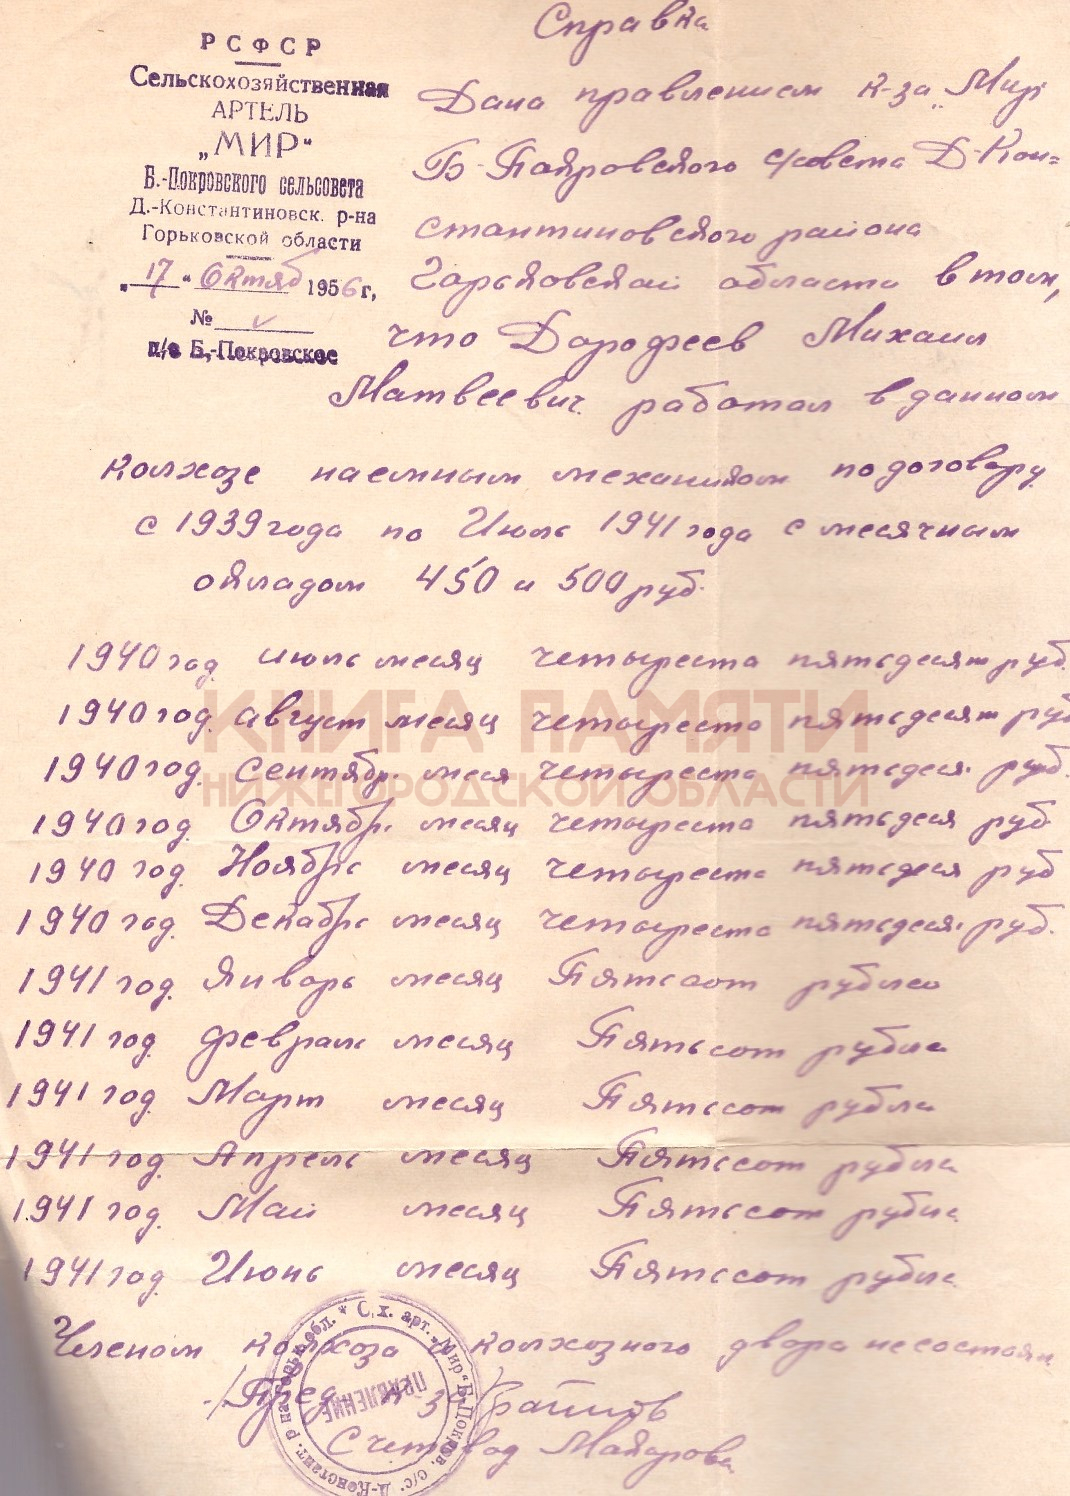 РСФСР
Сельскохозяйственная
АРТЕЛЬ
„МИР“
Б.-Покровского сельсовета
Д.-Константиновск. р-на
Горьковской области
„17“ Октяб 1956 г,
№ ✓
п/о Б.-Покровское
Справка
Дана правлением к-за „Мир
Б-Покровского с/совета Д-Кон=
стантиновского района
Горьковской области в том,
что Дорофеев Михаил
Матвеевич работал в данном
колхозе наемным механиком по договору
с 1939 года по Июль 1941 года с месячным
окладом 450 и 500 руб.
1940 год июль месяц четыреста пятьдесят руб.
1940 год август месяц четыреста пятьдесят руб
1940 год сентябрь меся четыреста пятьдеся. руб.
1940 год Октябрь месяц четыреста пятьдеся руб
1940 год Ноябрь месяц четыреста пятьдеся руб
1940 год Декабрь месяц четыреста пятьдеся. руб.
1941 год Январь месяц Пятьсот рублей
1941 год февраль месяц Пятьсот рубле
1941 год Март месяц Пятьсот рубле
1941 год Апрель месяц Пятьсот рубле
1941 год Май месяц Пятьсот рубле
1941 год Июнь месяц Пятьсот рубле
Членом колхоза и колхозного двора не состоял
Пред. к-за
Счетовод Майорова
С.х. арт. „Мир“ Б.Покров. с/с. Д-Констант. р-на Горьк. обл. *
ПРАВЛЕНИЕ
КНИГА ПАМЯТИ
НИЖЕГОРОДСКОЙ ОБЛАСТИ